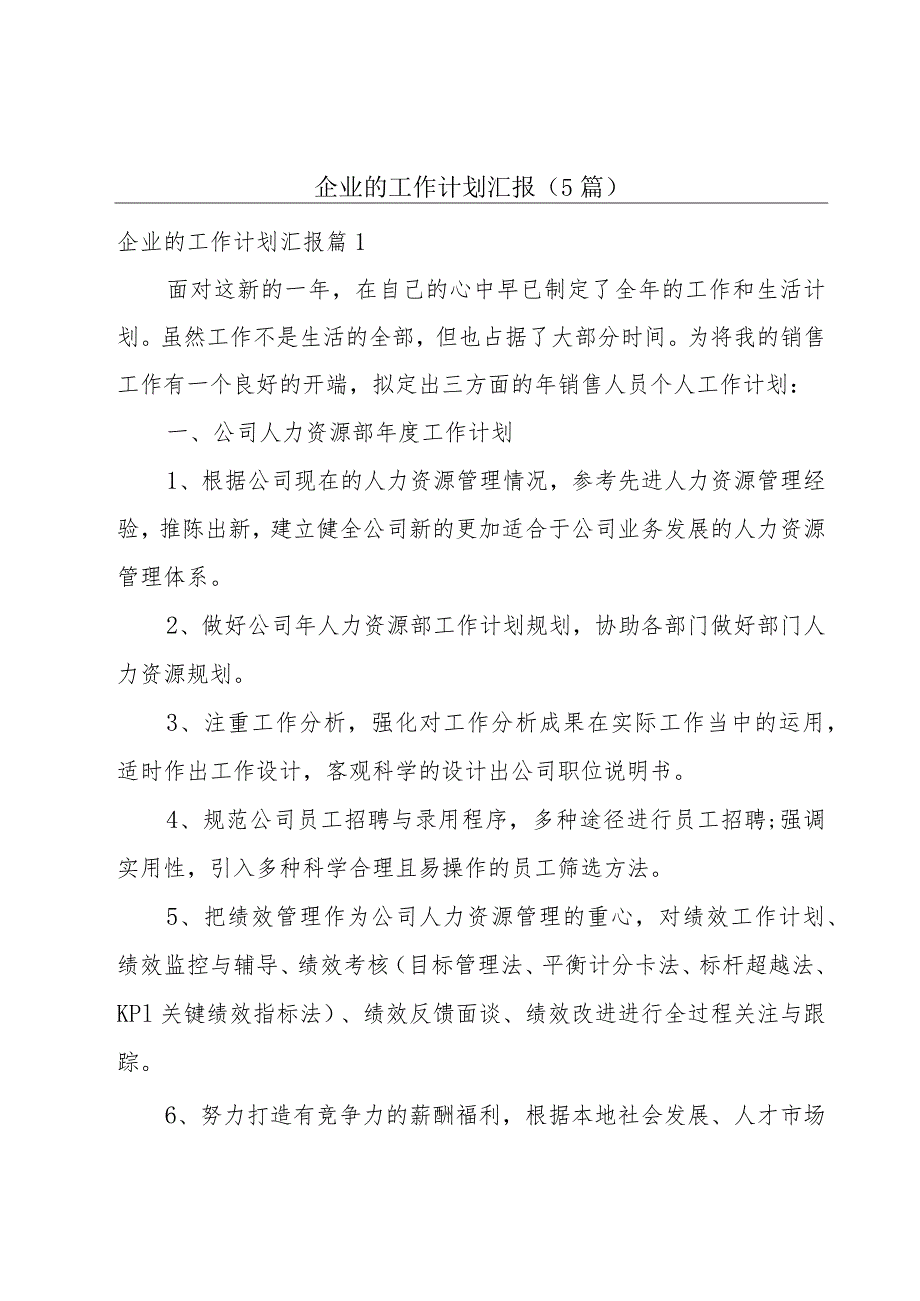 企业的工作计划汇报（5 篇）
企业的工作计划汇报篇 1
面对这新的一年，在自己的心中早已制定了全年的工作和生活计
划。虽然工作不是生活的全部，但也占据了大部分时间。为将我的销售
工作有一个良好的开端，拟定出三方面的年销售人员个人工作计划：
一、公司人力资源部年度工作计划
1、根据公司现在的人力资源管理情况，参考先进人力资源管理经
验，推陈出新，建立健全公司新的更加适合于公司业务发展的人力资源
管理体系。
2、做好公司年人力资源部工作计划规划，协助各部门做好部门人
力资源规划。
3、注重工作分析，强化对工作分析成果在实际工作当中的运用，
适时作出工作设计，客观科学的设计出公司职位说明书。
4、规范公司员工招聘与录用程序，多种途径进行员工招聘;强调
实用性，引入多种科学合理且易操作的员工筛选方法。
5、把绩效管理作为公司人力资源管理的重心，对绩效工作计划、
绩效监控与辅导、绩效考核（目标管理法、平衡计分卡法、标杆超越法、
KPl 关键绩效指标法）、绩效反馈面谈、绩效改进进行全过程关注与跟
踪。
6、努力打造有竞争力的薪酬福利，根据本地社会发展、人才市场